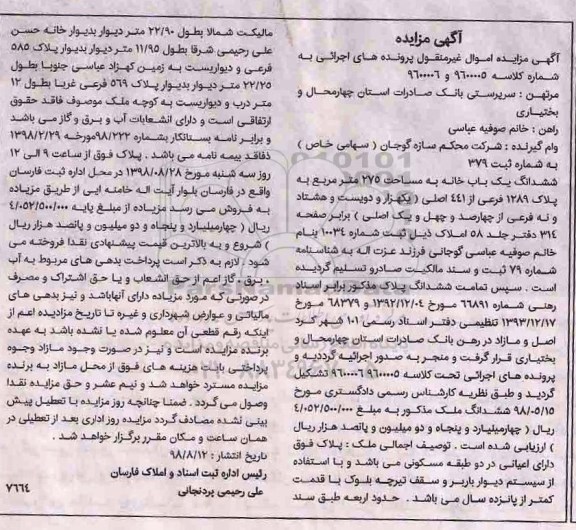 آگهی مزایده
آگهی مزایده اموال غیرمنقول پرونده های اجرائی به
شماره کلاسه ۹۶۰۰۰۰۵ و ۹۶۰۰۰۰۶
مرتهن : سرپرستی بانک صادرات استان چهارمحال و
بختیاری
راهن : خانم صوفیه عباسی
وام گیرنده : شرکت محکم سازه گوجان ( سهامی خاص )
به شماره ثبت ۳۷۹
ششدانگ یک باب خانه به مساحت ۲۷۵ متر مربع به
پلاک ۱۲۸۹ فرعی از ۴۴۱ اصلی ( یکهزار و دویست و هشتاد
و نه فرعی از چهارصد و چهل و یک اصلی ) برابر صفحه
۳۱۴ دفتر جلد ۵۸ املاک ذیل ثبت شماره ۱۰۰۳۴ بنام
خانم صوفیه عباسی گوجانی فرزند عزت اله به شناسنامه
شماره ۷۹ ثبت و سند مالکیت صادرو تسلیم گردیده
است . سپس تمامت ششدانگ پلاک مذکور برابر اسناد
رهنی شماره ۶۶۸۹۱ مورخ ۱۳۹۲/۱۲/۰۴و ۶۸۳۷۹ مورخ
۱۳۹۳/۱۲/۱۷ تنظیمی دفتر اسناد رسمی ۱۰۱ شهر کرد
اصل و مازاد در رهن بانک صادرات استان چهارمحال و
بختیاری قرار گرفت و منجر به صدور اجرائیه گردیده و
پرونده های اجرائی تحت کلاسه ۹۶۰۰۰۰۵ و ۹۶۰۰۰۰۶ تشکیل
گردید و طبق نظریه کارشناس رسمی دادگستری مورخ
۹۸/۰۵/۱۵ ششدانگ ملک مذکور به مبلغ ۴/۰۵۲/۵۰۰/۰۰۰
ریال ( چهارمیلیارد و پنجاه و دو میلیون و پانصد هزار ریال
) ارزیابی شده است . توصیف اجمالی ملک : پلاک فوق
دارای اعیانی در دو طبقه مسکونی می باشد و با استفاده
از سیستم دیوار باربر و سقف تیرچه بلوک با قدمت
کمتر از پانزده سال می باشد . حدود اربعه طبق سند
مالکیت شمالا بطول ۲۲/۹۰ متر دیوار بدیوار خانه حسن
علی رحیمی شرقا بطول ۱۱/۹۵ متر دیوار بدیوار پلاک ۵۸۵
فرعی و دیواریست به زمین کهزاد عباسی جنوبا بطول
۲۲/۲۵ متر دیوار بدیوار پلاک ۵۶۹ فرعی غربا بطول ۱۲
متر درب و دیواریست به کوچه ملک موصوف فاقد حقوق
ارتفاقی است و دارای انشعابات آب و برق و گاز می باشد
و برابر نامه بستانکار بشماره ۹۸/۲۲۲مورخه ۱۳۹۸/۲/۲۹
ذفاقد بیمه نامه می باشد . پلاک فوق از ساعت ۹ الی ۱۲
روز سه شنبه مورخ ۱۳۹۸/۰۸/۲۸ در محل اداره ثبت فارسان
واقع در فارسان بلوار آیت اله خامنه ایی از طریق مزیاده
به فروش می رسد مزیاده از مبلغ پایه ۴/۰۵۲/۵۰۰/۰۰۰
ریال ( چهارمیلیارد و پنجاه و دو میلیون و پانصد هزار ریال
) شروع و به بالاترین قیمت پیشنهادی نقدا فروخته می
شود . لازم به ذکر است پرداخت بدهی های مربوط به آب
، برق ، گاز اعم از حق انشعاب و یا حق اشتراک و مصرف
در صورتی که مورد مزیاده دارای آنهاباشد و نیز بدهی های
مالیاتی و عوارض شهرداری و غیره تا تاریخ مزادیده اعم از
اینکه رقم قطعی آن معلوم شده یا نشده باشد به عهده
برنده مزایده است و نیز در صورت وجود مازاد وجوه
پرداختی بابت هزینه های فوق از محل مازاد به برنده
مزایده مسترد خواهد شد و نیم عشر و حق مزایده نقدا
وصول می گردد . ضمنا چنانچه روز مزایده با تعطیل پیش
بینی نشده مصادف گردد مزایده روز اداری بعد از تعطیلی در
همان ساعت و مکان مقرر برگزار خواهد شد .
تاریخ انتشار : ۹۸/۸/۱۲
رئیس اداره ثبت اسناد و املاک فارسان
علی رحیمی پردنجانی
۷۶۶۴